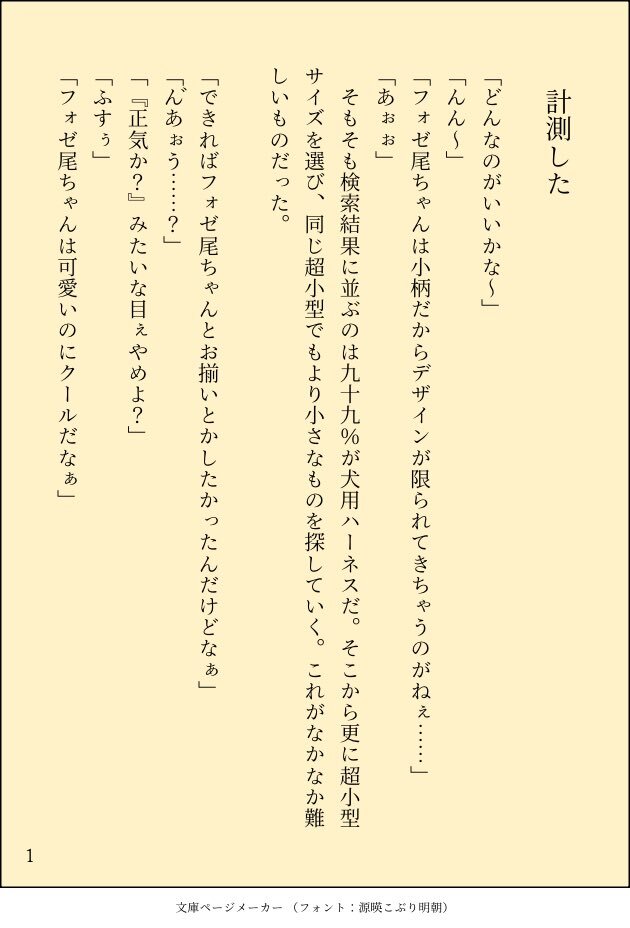 計測した
「どんなのがいいかな～」
「んん～」
「フォゼ尾ちゃんは小柄だからデザインが限られてきちゃうのがねぇ……」
「あぉぉ」
　そもそも検索結果に並ぶのは九十九％が犬用ハーネスだ。そこから更に超小型
サイズを選び、同じ超小型でもより小さなものを探していく。これがなかなか難
しいものだった。
「できればフォゼ尾ちゃんとお揃いとかしたかったんだけどなぁ」
「ん゙あぉう……？」
「『正気か？』みたいな目ぇやめよ？」
「ふすぅ」
「フォゼ尾ちゃんは可愛いのにクールだなぁ」
1
文庫ページメーカー （フォント：源暎こぶり明朝）